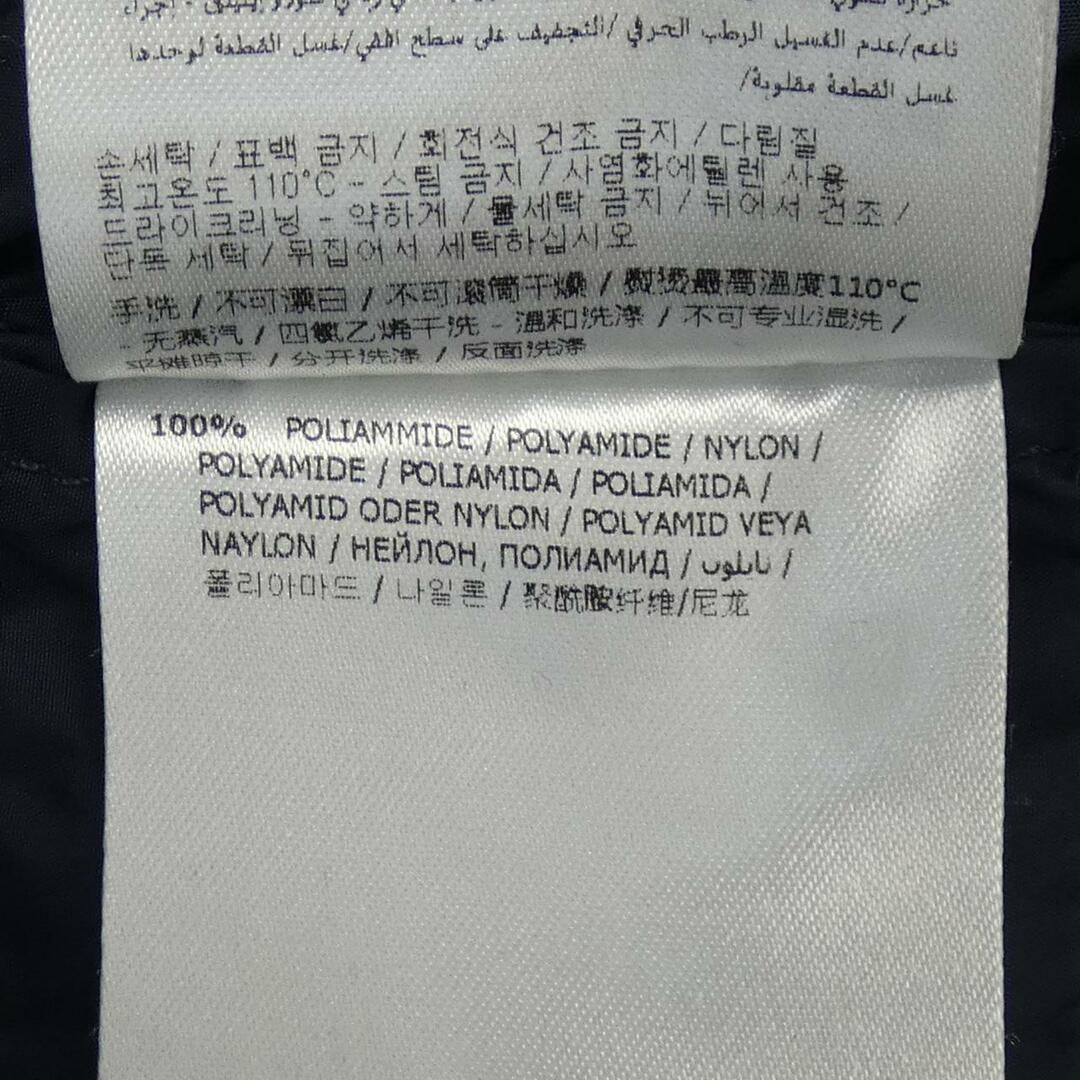 ناعم/عدم الغسيل الرطب الحرفي /التجفيف على سطح افقي/غسل القطعة لوحدها
غسل القطعة مقلوبة/
손세탁 / 표백 금지 / 회전식 건조 금지 / 다림질
최고온도 110°C - 스팀 금지 / 사염화에틸렌 사용
드라이크리닝 - 약하게 / 물세탁 금지 / 뉘어서 건조 /
단독 세탁 / 뒤집어서 세탁하십시오
手洗 / 不可漂白 / 不可滾筒干燥 / 熨燙最高溫度110°C
- 无蒸汽 / 四氯乙烯干洗 - 温和洗涤 / 不可专业湿洗 /
平摊晾干 / 分开洗涤 / 反面洗涤
100% POLIAMMIDE / POLYAMIDE / NYLON /
POLYAMIDE / POLIAMIDA / POLIAMIDA /
POLYAMID ODER NYLON / POLYAMID VEYA
NAYLON / НЕЙЛОН, ПОЛИАМИД / نايلون /
폴리아마드 / 나일론 / 聚酰胺纤维/尼龙